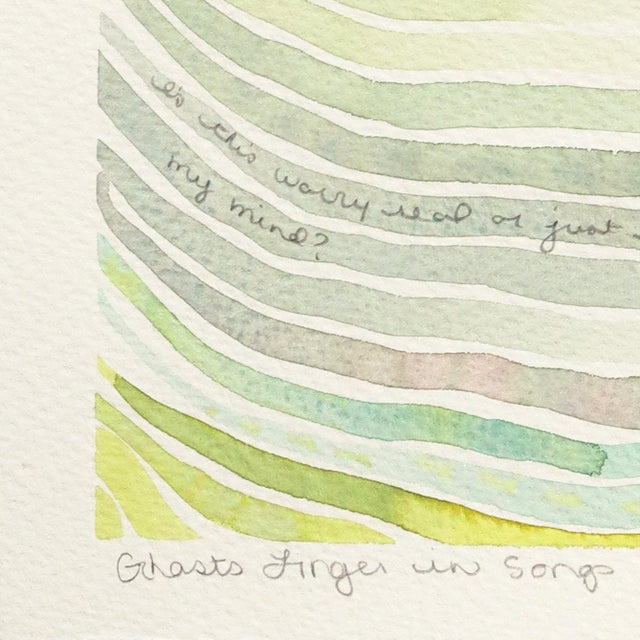 Is this worry real or just
my mind?
Ghosts Linger in Songs